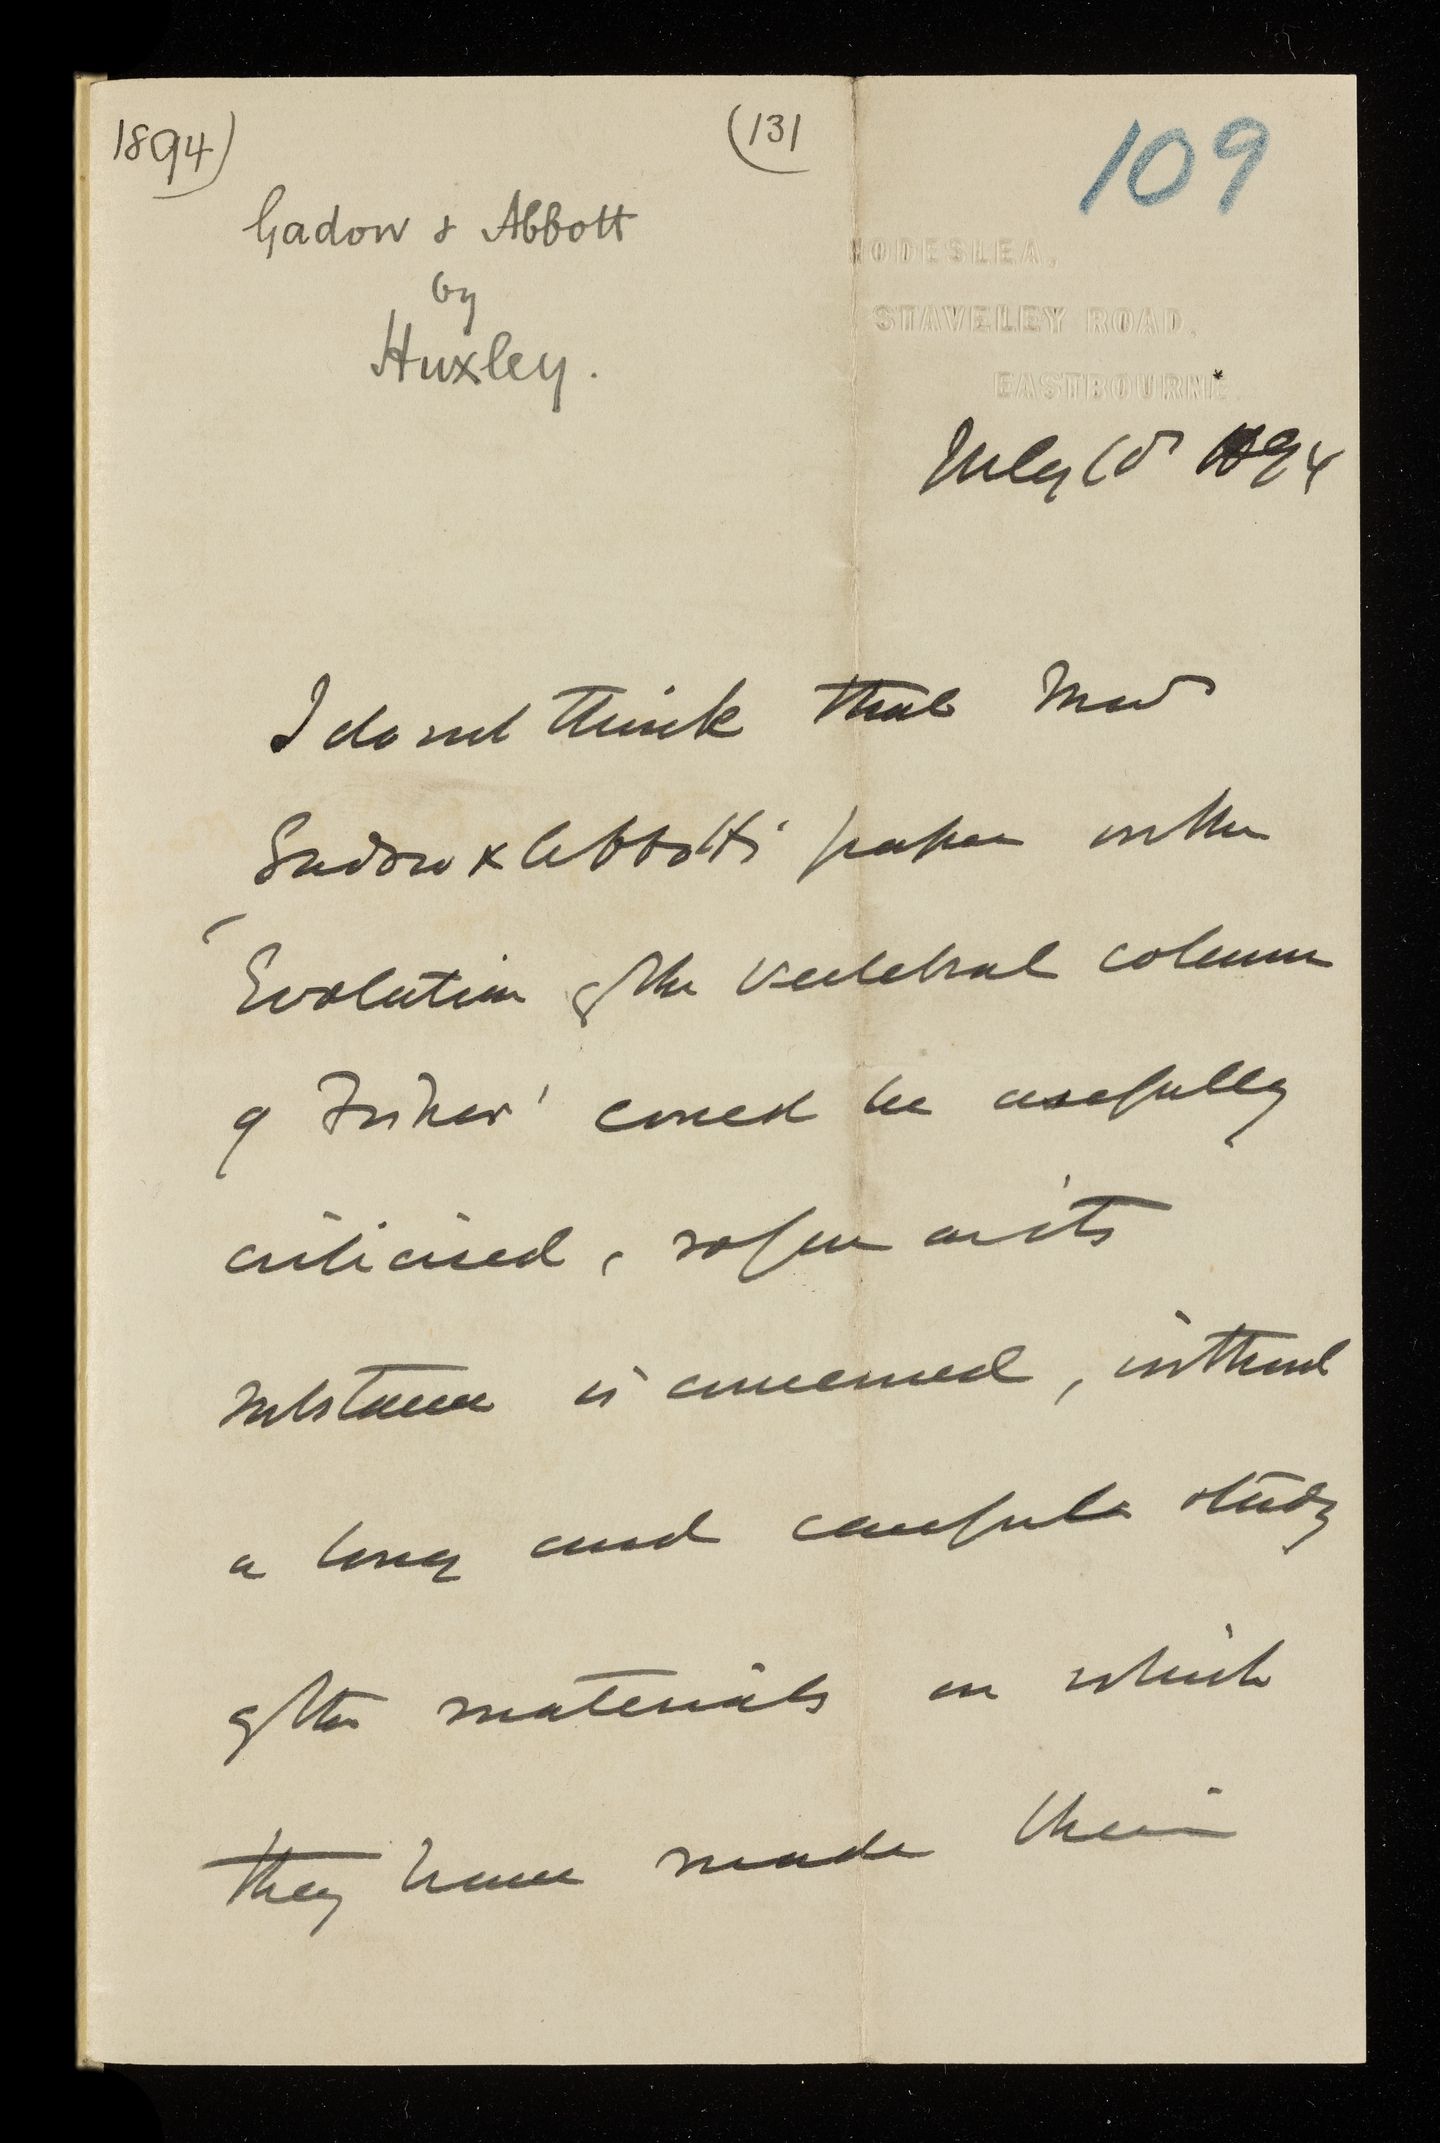 1894)
(131
109
Gadow & Abbott
by
Huxley.
HODESLEA,
STAVELEY ROAD,
EASTBOURNE.
July 10 1894
I do not think that
Gadow & Abbott's paper on the
'Evolution of the vertebral column
of Fishes' could be usefully
criticised, so far as its
substance is concerned, without
a long and careful study
of the materials on which
they have made their